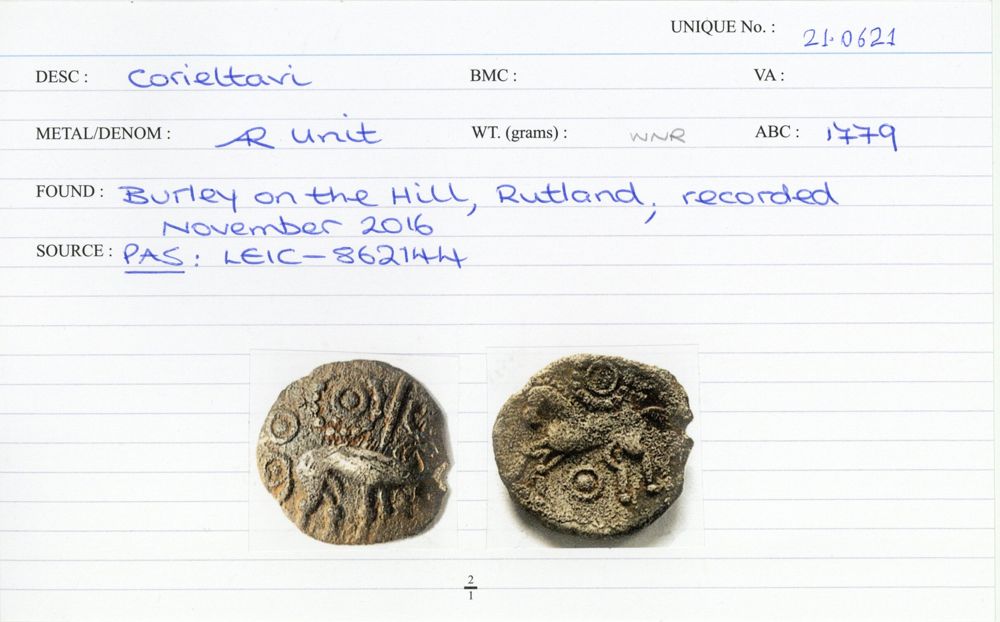 UNIQUE No. : 21.0621
DESC : Corieltavi BMC : VA :
METAL/DENOM : AR unit WT. (grams) : WNR ABC : 1779
FOUND : Burley on the Hill, Rutland, recorded
November 2016
SOURCE : PAS: LEIC-862144
2
1